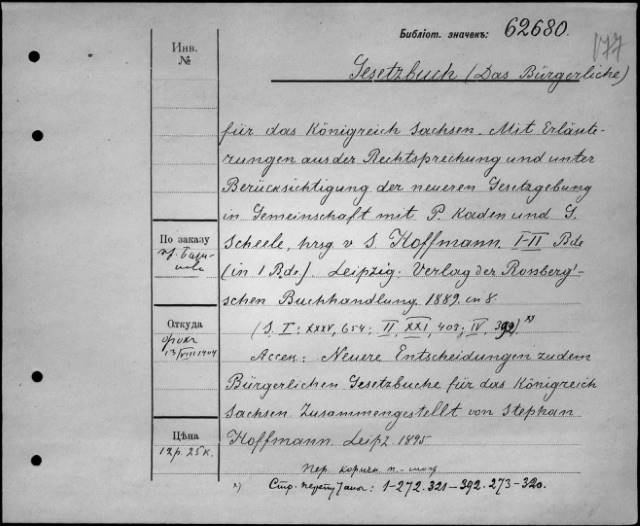 Библіот. значекъ: 62680.
177
Инв.
№
Gesetzbuch (Das Bürgerliche)
für das Königreich Sachsen. Mit Erläute-
rungen aus der Rechtsprechung und unter
Berücksichtigung der neueren Gesetzgebung
in Gemeinschaft mit P. Kaden und G.
Scheele, hrsg v S. Hoffmann I-II Bde
(in 1 Bde). Leipzig: Verlag der Rossberg'-
schen Buchhandlung 1889. in 8.
(S. I: XXXV, 654: II, XXI, 403; IV, 392) x)
Accen: Neuere Entscheidungen zu dem
Bürgerlichen Gesetzbuche für das Königreich
Sachsen. Zusammengestellt von Stephan
Hoffmann. Leipz. 1895
По заказу
Откуда
13/VIII 1904
Цѣна
12 р. 25 к.
Пер. коричн.
x) Стр. : 1-272. 321-392. 273-320.